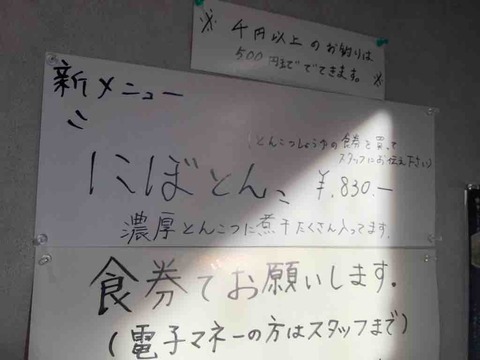 ※ 千円以上のお釣りは
500円まででてきます。 ※
新メニュー
(とんこつしょうゆの食券を買って
スタッフにお伝え下さい)
にぼとんこ ¥.830.-
濃厚とんこつに煮干たくさん入ってます。
食券でお願いします。
(電子マネーの方はスタッフまで)